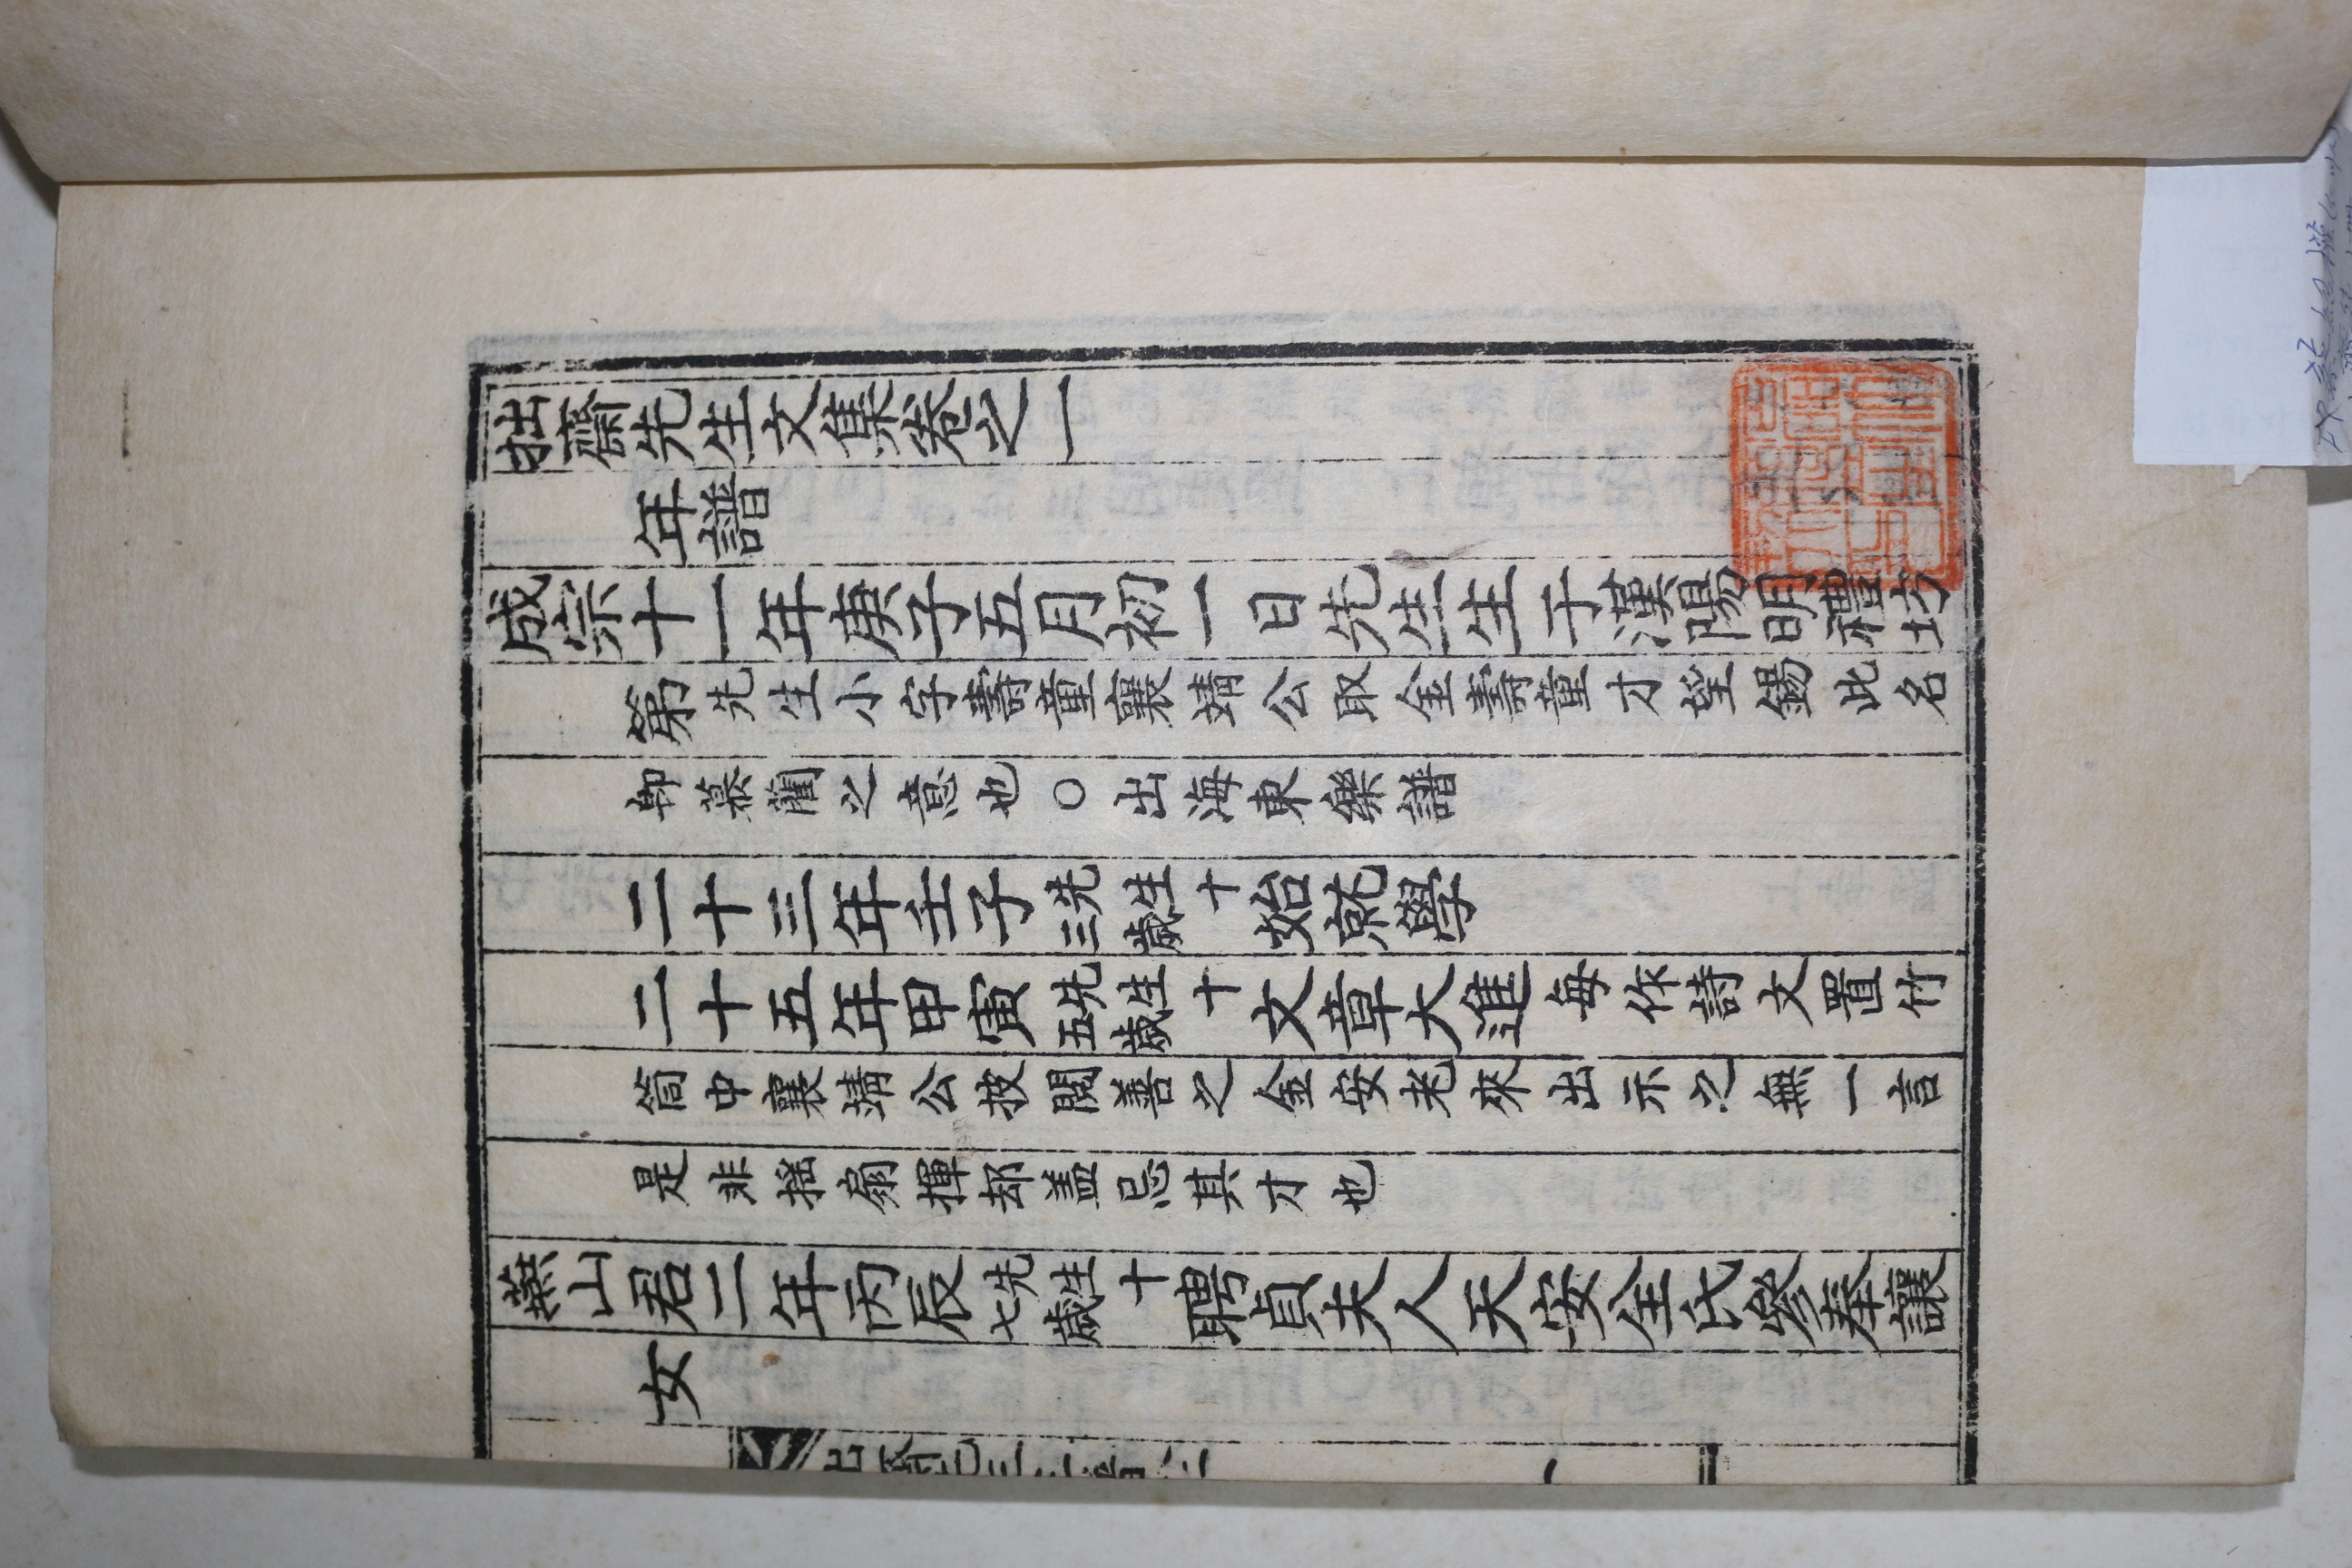 壯齋先生文集卷之一
年譜
成宗十一年庚子五月初一日先生生于漢陽明禮坊
第先生小字壽童襄靖公取金壽童才望錫此名
卽慕藺之意也○出海東樂譜
二十三年壬子先生十三歲始就學
二十五年甲寅先生十五歲文章大進每作詩文置竹
筒中襄靖公披閱善之金安老來出示之無一言
是非搖扇揮却盖忌其才也
燕山君二年丙辰先生十七歲聘貞夫人天安全氏參奉讓
女